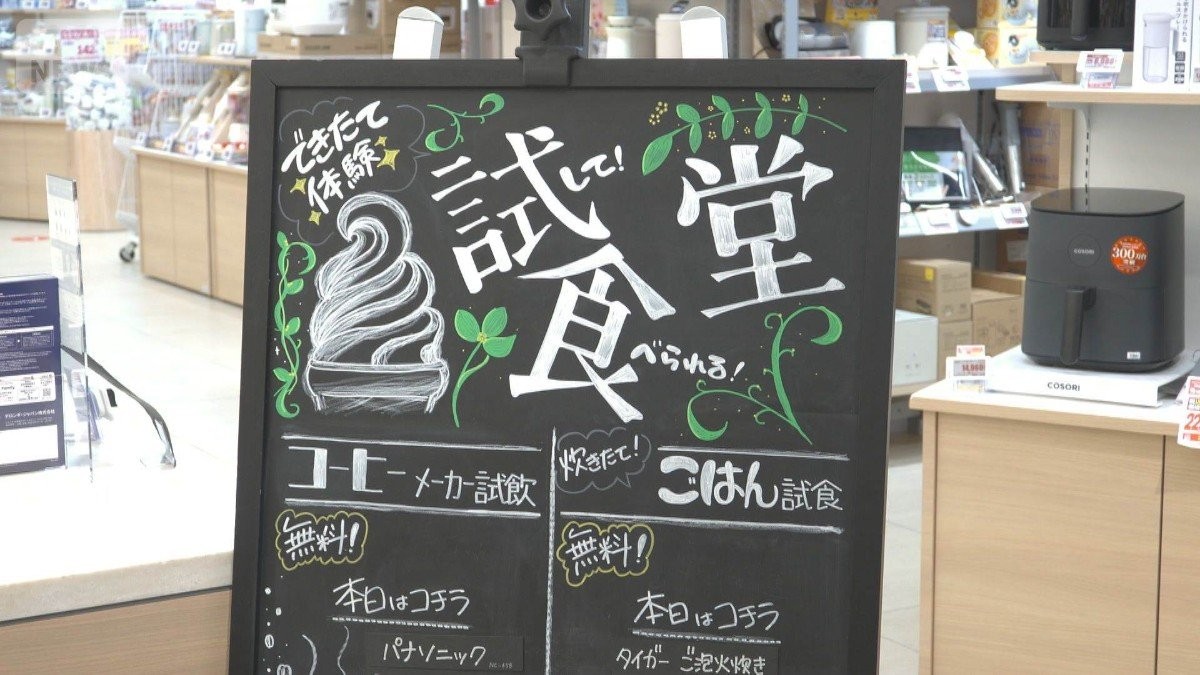 できたて
体験
試して!
食べられる!
堂
コーヒーメーカー試飲
無料!
本日はコチラ
パナソニック
炊きたて!
ごはん試食
無料!
本日はコチラ
タイガー ご泡火炊き
COSORI
300万台
COSORI
14,960
デロンギ・ジャパン株式会社